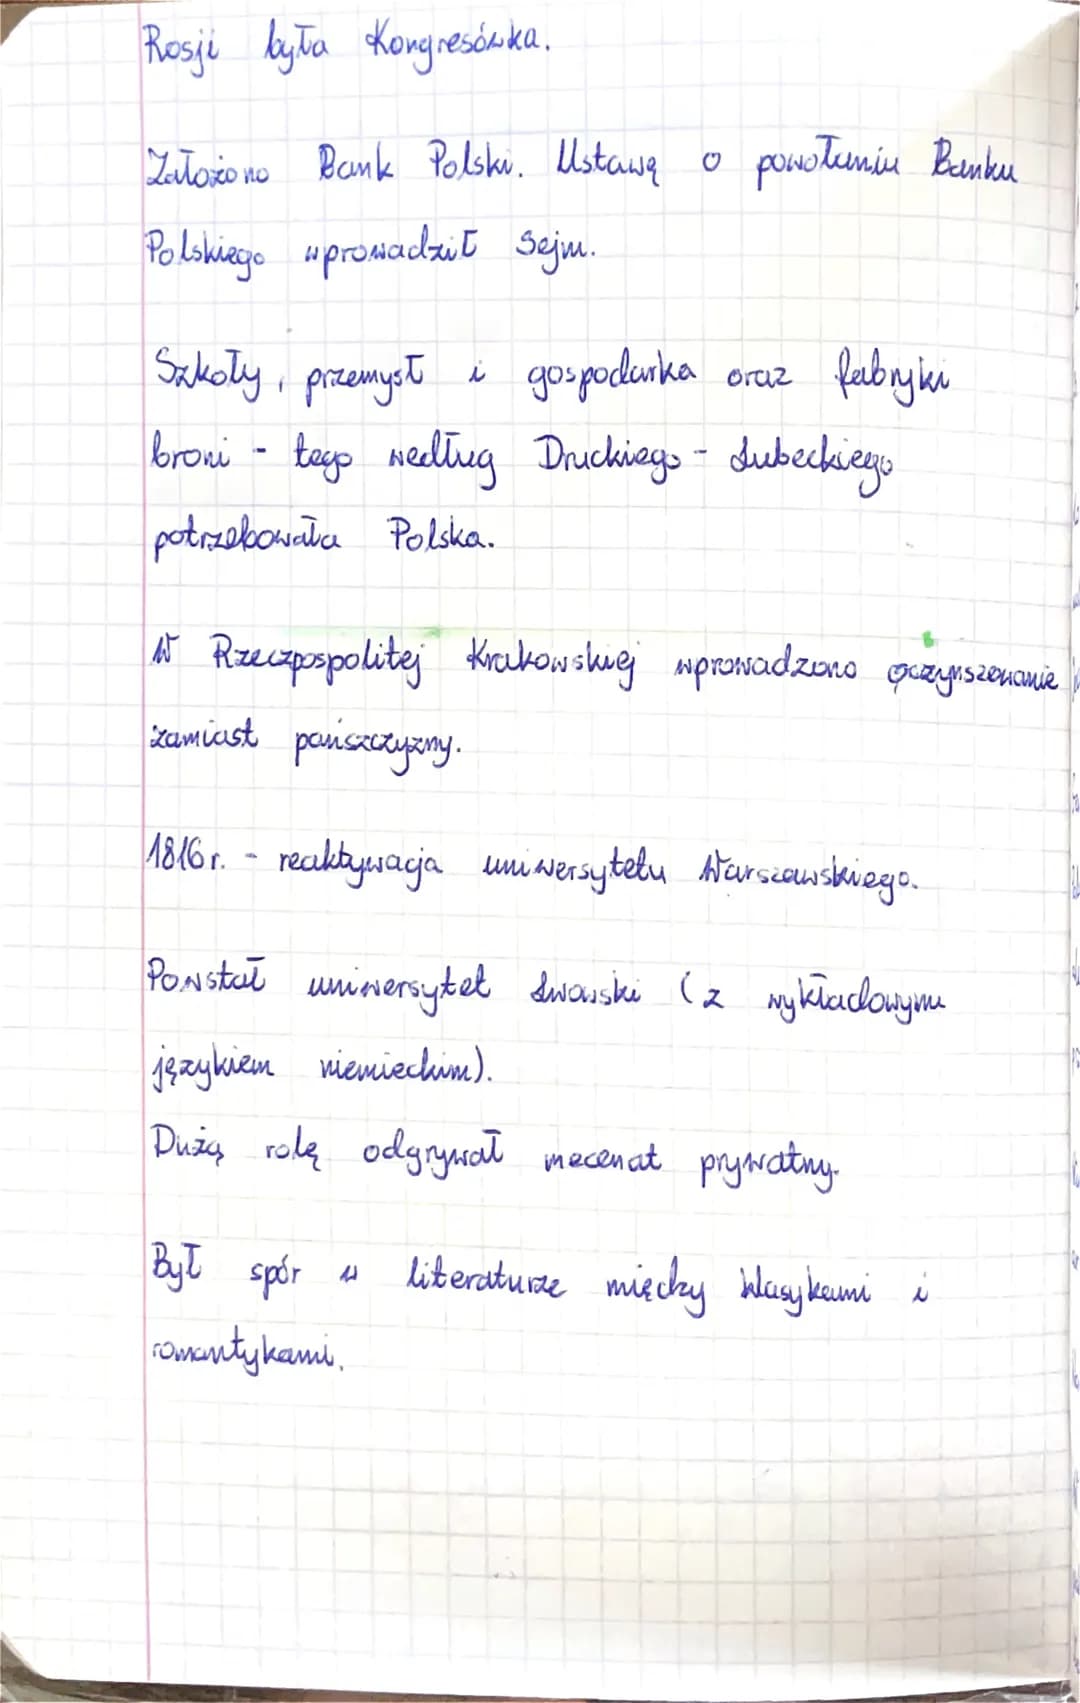 Rosji była Kongresówka.
Założono Bank Polski. Ustawę o powołaniu Banku
Polskiego wprowadził Sejm.
Szkoły, przemysł i gospodarka oraz fabryki
broni - tego według Druckiego - Lubeckiego
potrzebowała Polska.
W Rzeczpospolitej Krakowskiej wprowadzono oczynszowanie
zamiast pańszczyzny.
1816 r. - reaktywacja uniwersytetu Warszawskiego.
Powstał uniwersytet Lwowski (z wykładowym
językiem niemieckim).
Dużą rolę odgrywał mecenat prywatny.
Był spór w literaturze między klasykami i
romantykami.